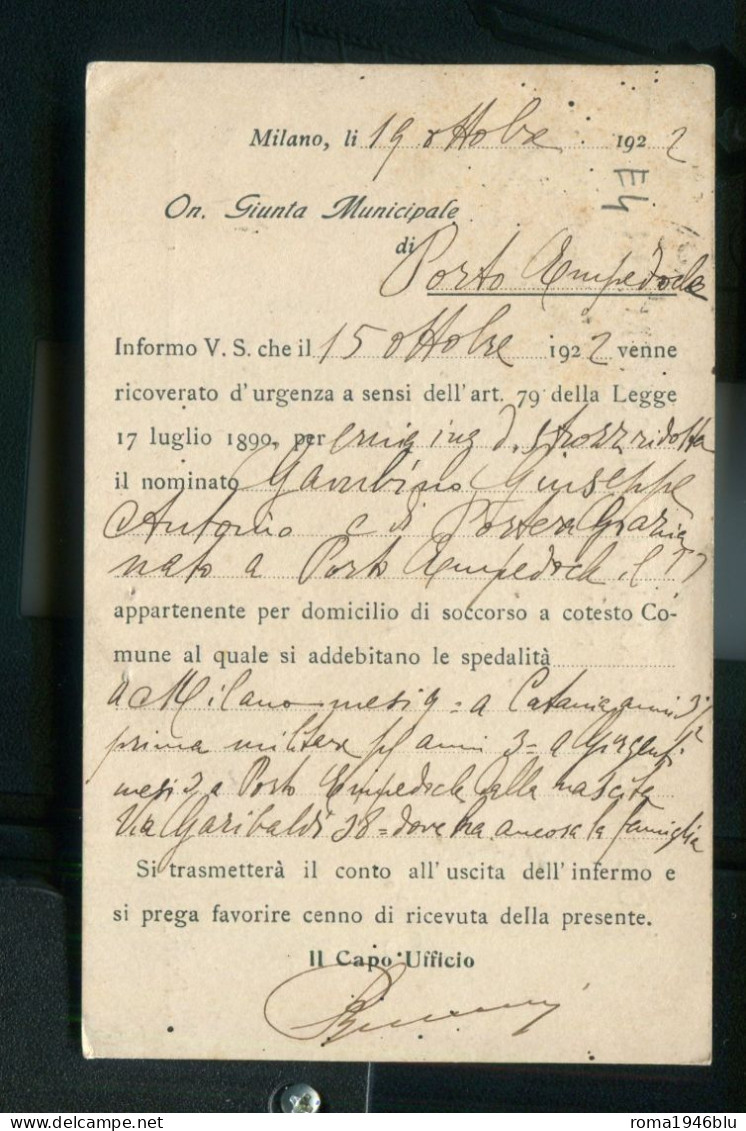 Milano, li 19 ottobre 1922
E4
On. Giunta Municipale
di Porto Empedocle
Informo V. S. che il 15 ottobre 1922 venne
ricoverato d'urgenza a sensi dell'art. 79 della Legge
17 luglio 1890, per ernia ing d. strozz ridotta
il nominato Gambino Giuseppe
Antonio e di Portera Grazia
nato a Porto Empedocle il
appartenente per domicilio di soccorso a cotesto Co-
mune al quale si addebitano le spedalità
a Milano mesi 9 = a Catania anni 3 1/2
prima militare pel anni 3 = a Girgenti
mesi 2 a Porto Empedocle dalla nascita
Via Garibaldi 38 = dove ha ancora la famiglia
Si trasmetterà il conto all'uscita dell'infermo e
si prega favorire cenno di ricevuta della presente.
Il Capo Ufficio
roma1946blu